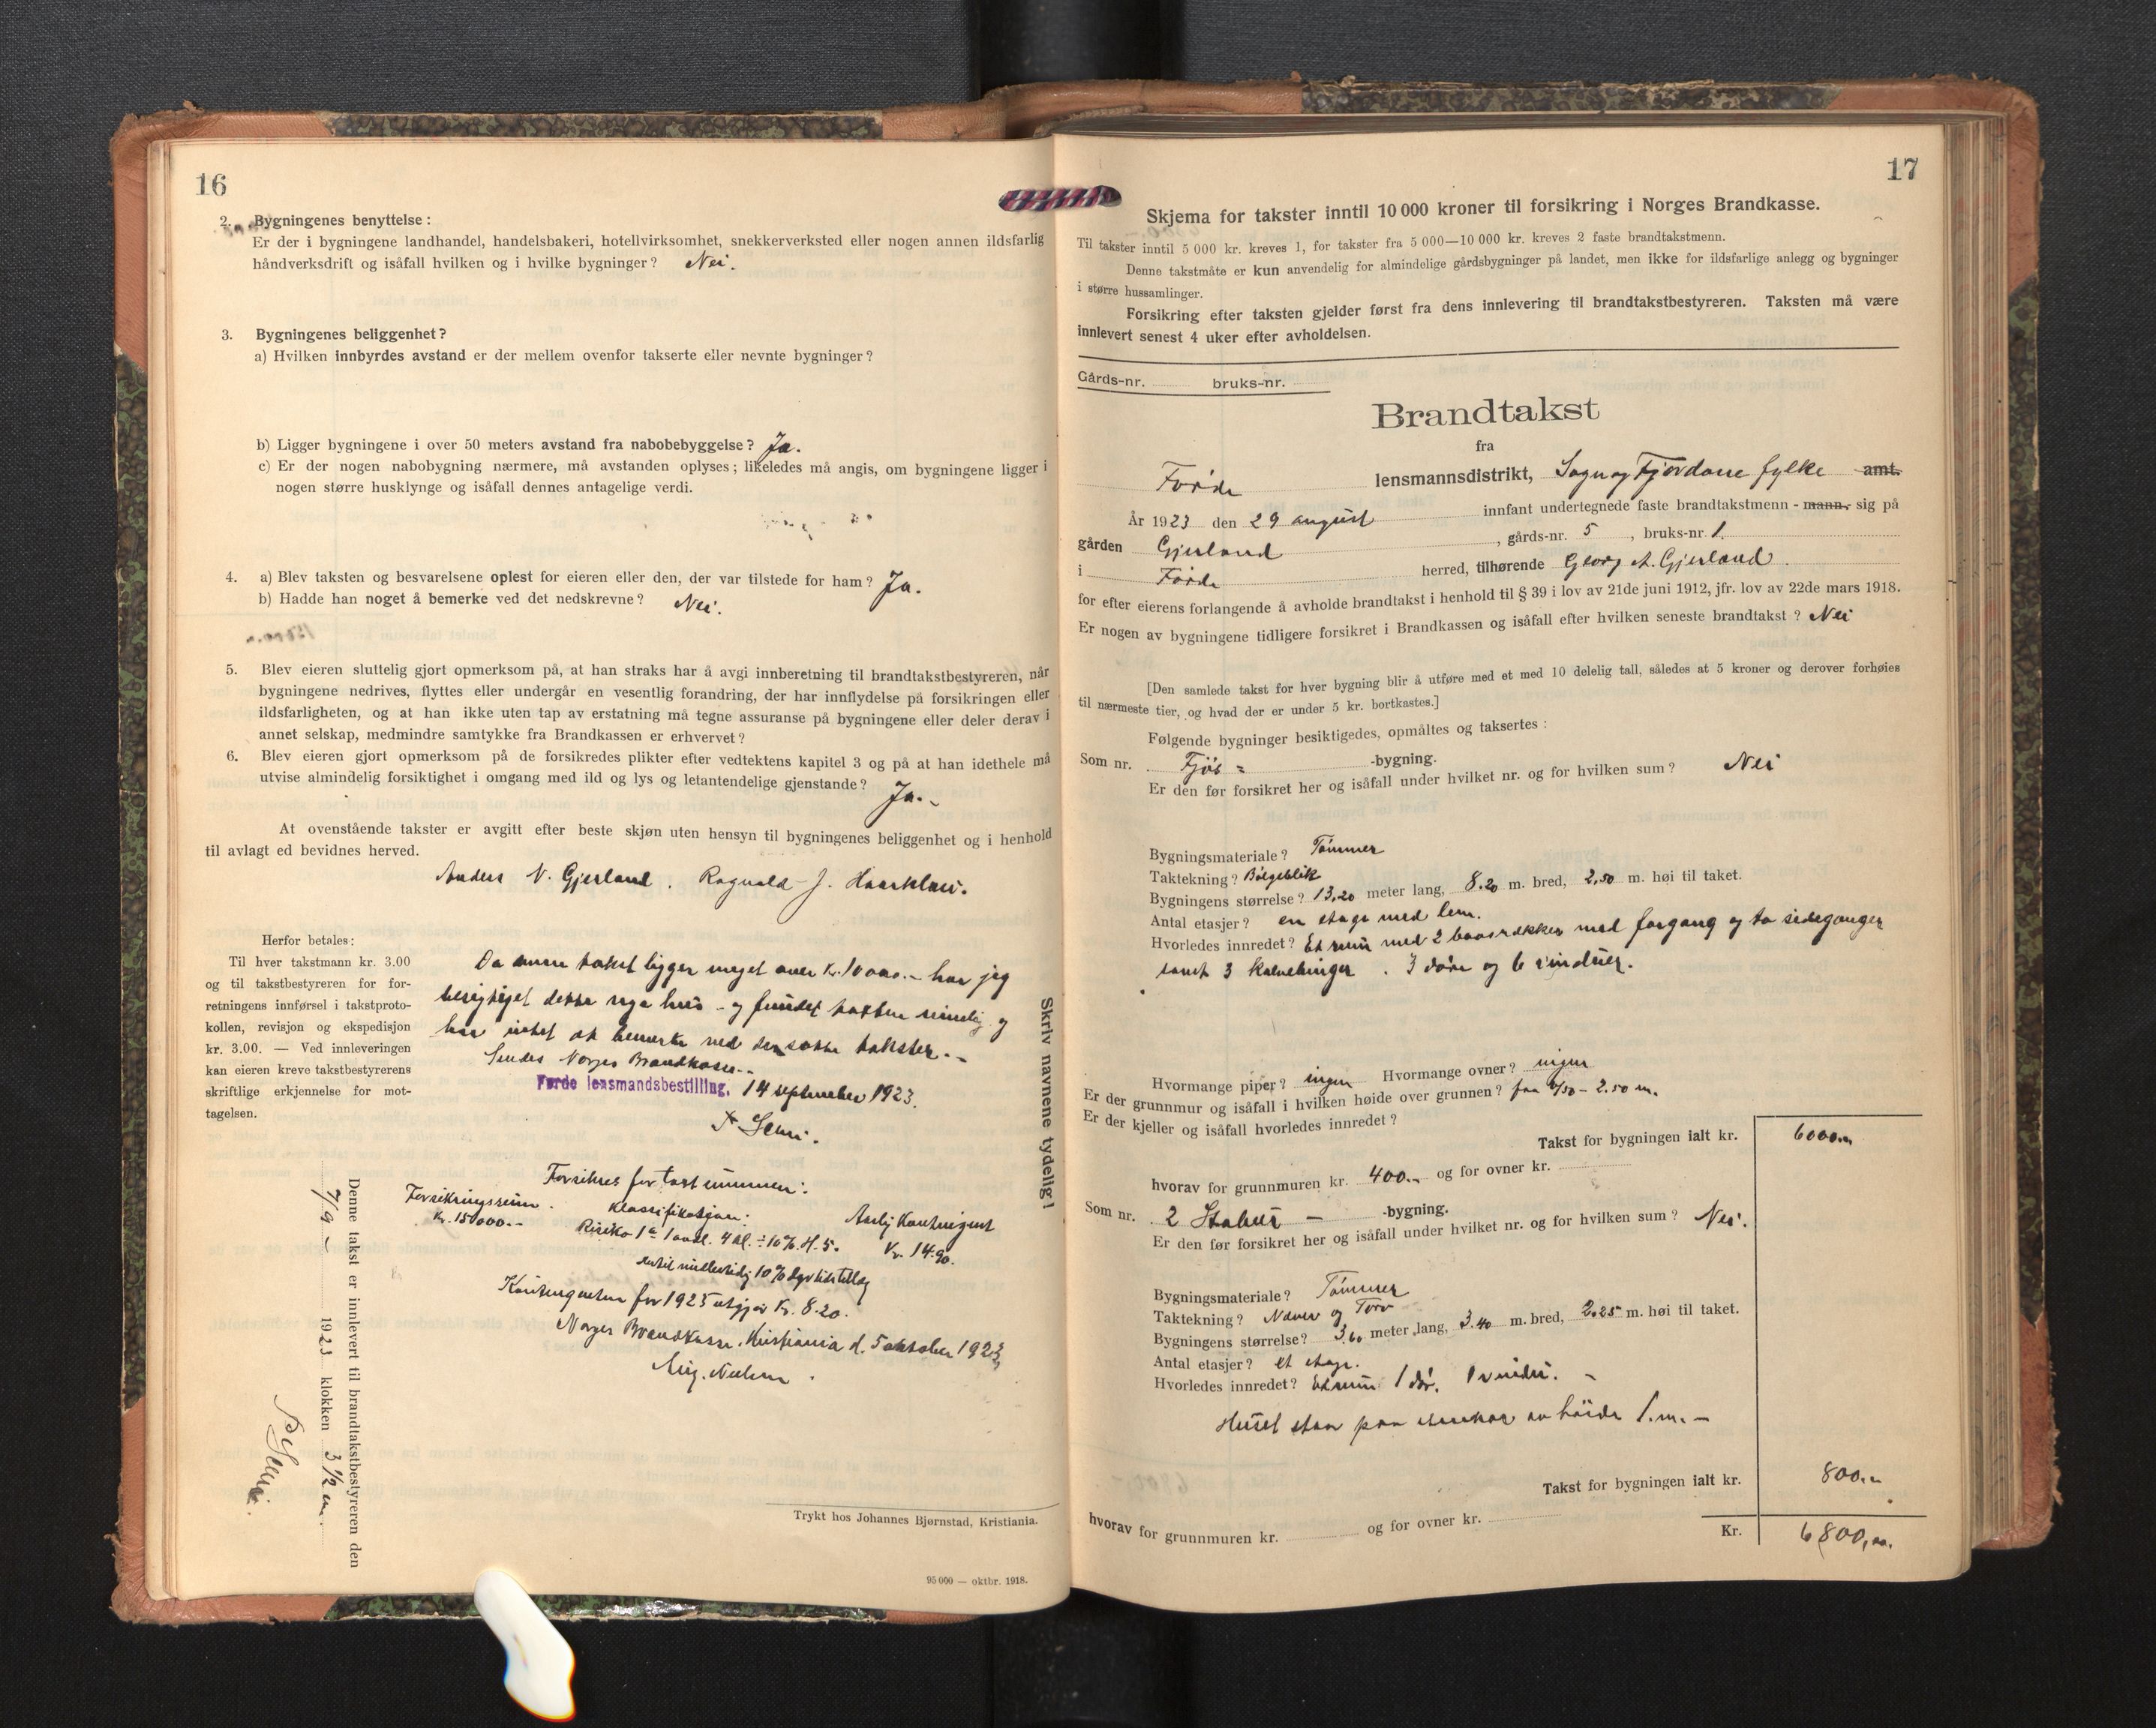 16
2. Bygningenes benyttelse :
Er der i bygningene landhandel, handelsbakeri, hotellvirksomhet, snekkerverksted eller nogen annen ildsfarlig
håndverksdrift og isåfall hvilken og i hvilke bygninger? Nei.
3. Bygningenes beliggenhet?
a) Hvilken innbyrdes avstand er der mellem ovenfor takserte eller nevnte bygninger?
b) Ligger bygningene i over 50 meters avstand fra nabobebyggelse? Ja.
c) Er der nogen nabobygning nærmere, må avstanden oplyses; likeledes må angis, om bygningene ligger i
nogen større husklynge og isåfall dennes antagelige verdi.
4. a) Blev taksten og besvarelsene oplest for eieren eller den, der var tilstede for ham? Ja.
b) Hadde han noget å bemerke ved det nedskrevne? Nei.
5. Blev eieren sluttelig gjort opmerksom på, at han straks har å avgi innberetning til brandtakstbestyreren, når
bygningene nedrives, flyttes eller undergår en vesentlig forandring, der har innflydelse på forsikringen eller
ildsfarligheten, og at han ikke uten tap av erstatning må tegne assuranse på bygningene eller deler derav i
annet selskap, medmindre samtykke fra Brandkassen er erhvervet?
6. Blev eieren gjort opmerksom på de forsikredes plikter efter vedtektens kapitel 3 og på at han idethele må
utvise almindelig forsiktighet i omgang med ild og lys og letantendelige gjenstande? Ja.-
At ovenstående takster er avgitt efter beste skjøn uten hensyn til bygningenes beliggenhet og i henhold
til avlagt ed bevidnes herved.
Anders N. Gjerland. Ragnald J. Haarklau.
Herfor betales:
Til hver takstmann kr. 3.00
og til takstbestyreren for for-
retningens innførsel i takstproto-
kollen, revisjon og ekspedisjon
kr. 3.00. — Ved innleveringen
kan eieren kreve takstbestyrerens
skriftlige erkjennelse for mot-
tagelsen.
Da denne takst ligger meget over Kr. 10000.- har jeg
besigtiget dette nye hus - og fundet taksten rimelig og
har intet at bemerke ved den satte takster.-
Sendes Norges Brandkasse.-
Førde lensmandsbestilling, 14 september 1923.
Skriv navnene tydelig!
Forsikres for takstsummen:
Forsikringssum. Klassifikasjon: Aarlig Kontingent
Kr. 15000.- Risiko 1a 1 avd. 4 kl. ÷ 10% H. 5. Kr. 14.90.
midlertidig 10% dyrtidstillæg
Kontingenten for 1923 utgjør Kr. 8.20.
Norges Brandkasse, Kristiania d. 5 oktober 1923
Aug. Nielsen
Denne takst er innlevert til brandtakstbestyreren den
7/9 - 1923 klokken 3 1/2 em.
Trykt hos Johannes Bjørnstad, Kristiania.
95 000 — oktbr. 1918.
17
Skjema for takster inntil 10 000 kroner til forsikring i Norges Brandkasse.
Til takster inntil 5 000 kr. kreves 1, for takster fra 5 000—10 000 kr. kreves 2 faste brandtakstmenn.
Denne takstmåte er kun anvendelig for almindelige gårdsbygninger på landet, men ikke for ildsfarlige anlegg og bygninger
i større hussamlinger.
Forsikring efter taksten gjelder først fra dens innlevering til brandtakstbestyreren. Taksten må være
innlevert senest 4 uker efter avholdelsen.
Gårds-nr. bruks-nr.
Brandtakst
fra
Førde lensmannsdistrikt, Sogn og Fjordane fylke amt.
År 1923 den 29 august innfant undertegnede faste brandtakstmenn - mann- sig på
gården Gjerland, gårds-nr. 5, bruks-nr. 1.
i Førde herred, tilhørende Georg A. Gjerland.
for efter eierens forlangende å avholde brandtakst i henhold til § 39 i lov av 21de juni 1912, jfr. lov av 22de mars 1918.
Er nogen av bygningene tidligere forsikret i Brandkassen og isåfall efter hvilken seneste brandtakst ? Nei
[Den samlede takst for hver bygning blir å utføre med et med 10 delelig tall, således at 5 kroner og derover forhøies
til nærmeste tier, og hvad der er under 5 kr. bortkastes.]
Følgende bygninger besiktigedes, opmåltes og taksertes :
Som nr. Fjøs = -bygning.
Er den før forsikret her og isåfall under hvilket nr. og for hvilken sum ? Nei
Bygningsmateriale ? Tømmer
Taktekning ? Bølgeblik
Bygningens størrelse ? 13,20 meter lang, 8.20 m. bred, 2,50 m. høi til taket.
Antal etasjer ? en etage med lem.
Hvorledes innredet ? Et rum med 2 baasrækker med forgang og to sideganger
samt 3 kalvebinger. 3 døre og 6 vinduer.
Hvormange piper ? ingen Hvormange ovner ? ingen
Er der grunnmur og isåfall i hvilken høide over grunnen ? fra 0/50 - 2.50 m.
Er der kjeller og isåfall hvorledes innredet ?
Takst for bygningen ialt kr. 6000.-
hvorav for grunnmuren kr. 400.- og for ovner kr.
Som nr. 2 Stabur - -bygning.
Er den før forsikret her og isåfall under hvilket nr. og for hvilken sum ? Nei.
Bygningsmateriale ? Tømmer
Taktekning ? Næver og Torv
Bygningens størrelse ? 3.60 meter lang, 3.40 m. bred, 2.25 m. høi til taket.
Antal etasjer ? et etage.
Hvorledes innredet ? Et rum 1 dør. 1 vindu. -
Huset staar paa stenkar av høide 1.m. -
Takst for bygningen ialt kr. 800.-
hvorav for grunnmuren kr. og for ovner kr.
Kr. 6800,00.